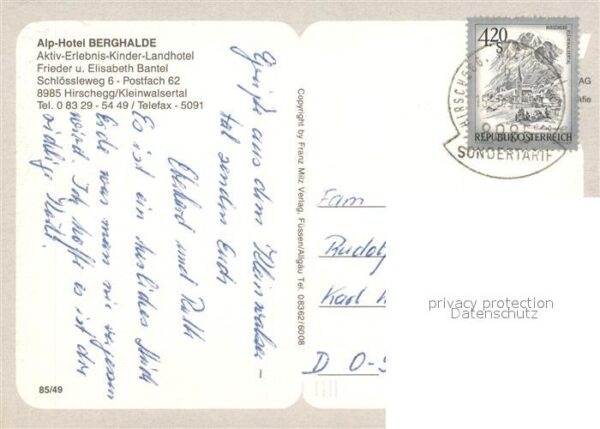 Alp-Hotel BERGHALDE
Aktiv-Erlebnis-Kinder-Landhotel
Frieder u. Elisabeth Bantel
Schlössleweg 6 - Postfach 62
8985 Hirschegg/Kleinwalsertal
Tel. 0 83 29 - 54 49 / Telefax - 5091
Grüße aus dem Kleinwalser-
tal senden Euch
Ekhard und Ruth
Es ist ein herrliches Stück
Erde was man nie vergessen
wird. Ich hoffe es ist der
richtige Text.
85/49
Copyright by Franz Milz Verlag, Füssen/Allgäu Tel. 08362/6008
4.20
S
REPUBLIK ÖSTERREICH
HIRSCHEGG
SONDERTARIF
AG
fie
Fam
Rudolf
Karl
D O-S
privacy protection
Datenschutz